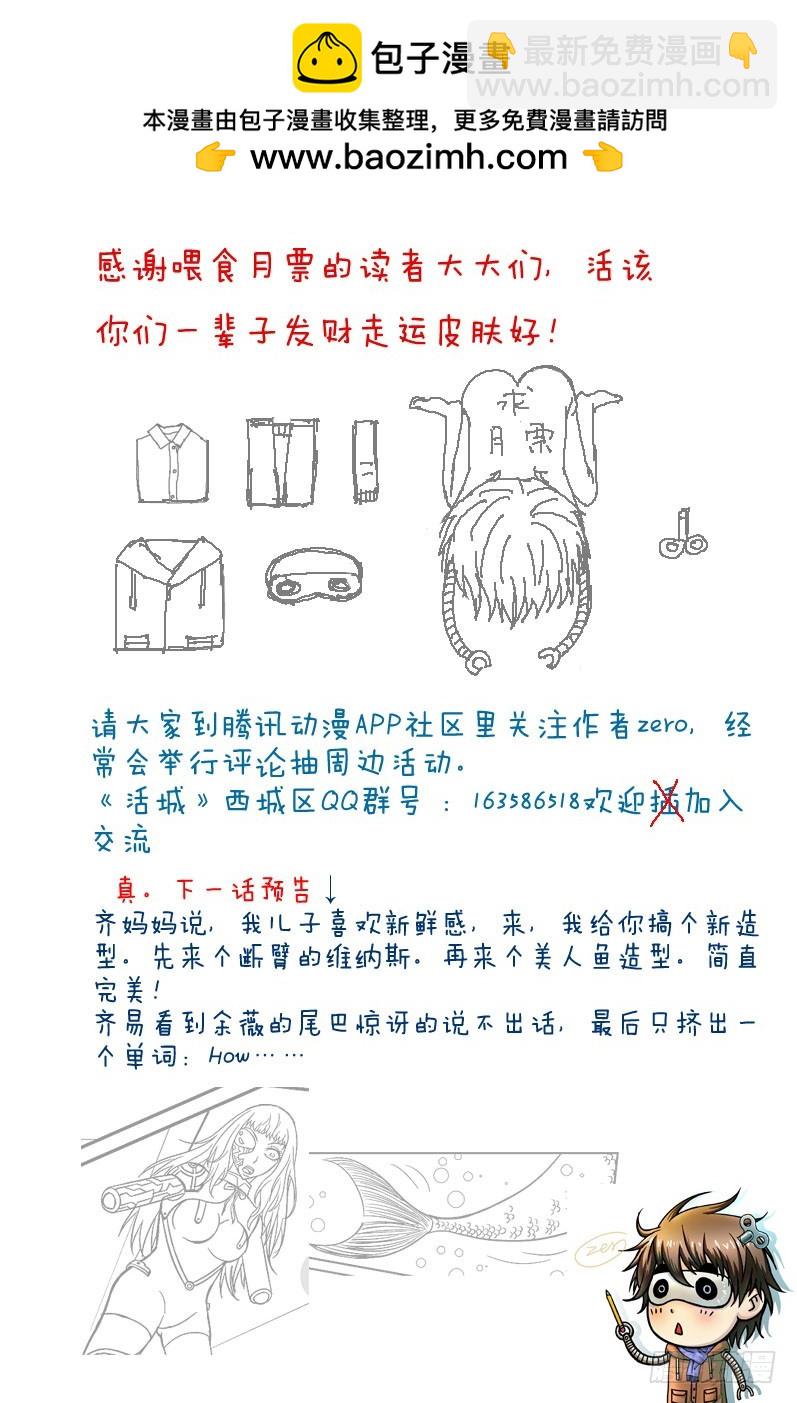 包子漫畫
最新免费漫画
www.baozimh.com
本漫畫由包子漫畫收集整理，更多免費漫畫請訪問
www.baozimh.com
感谢喂食月票的读者大大们，活该
你们一辈子发财走运皮肤好！
求
月票
请大家到腾讯动漫APP社区里关注作者zero，经
常会举行评论抽周边活动。
《活城》西城区QQ群号：163586518欢迎插加入
交流
真。下一话预告↓
齐妈妈说，我儿子喜欢新鲜感，来，我给你搞个新造
型。先来个断臂的维纳斯。再来个美人鱼造型。简直
完美！
齐易看到余薇的尾巴惊讶的说不出话，最后只挤出一
个单词：How……